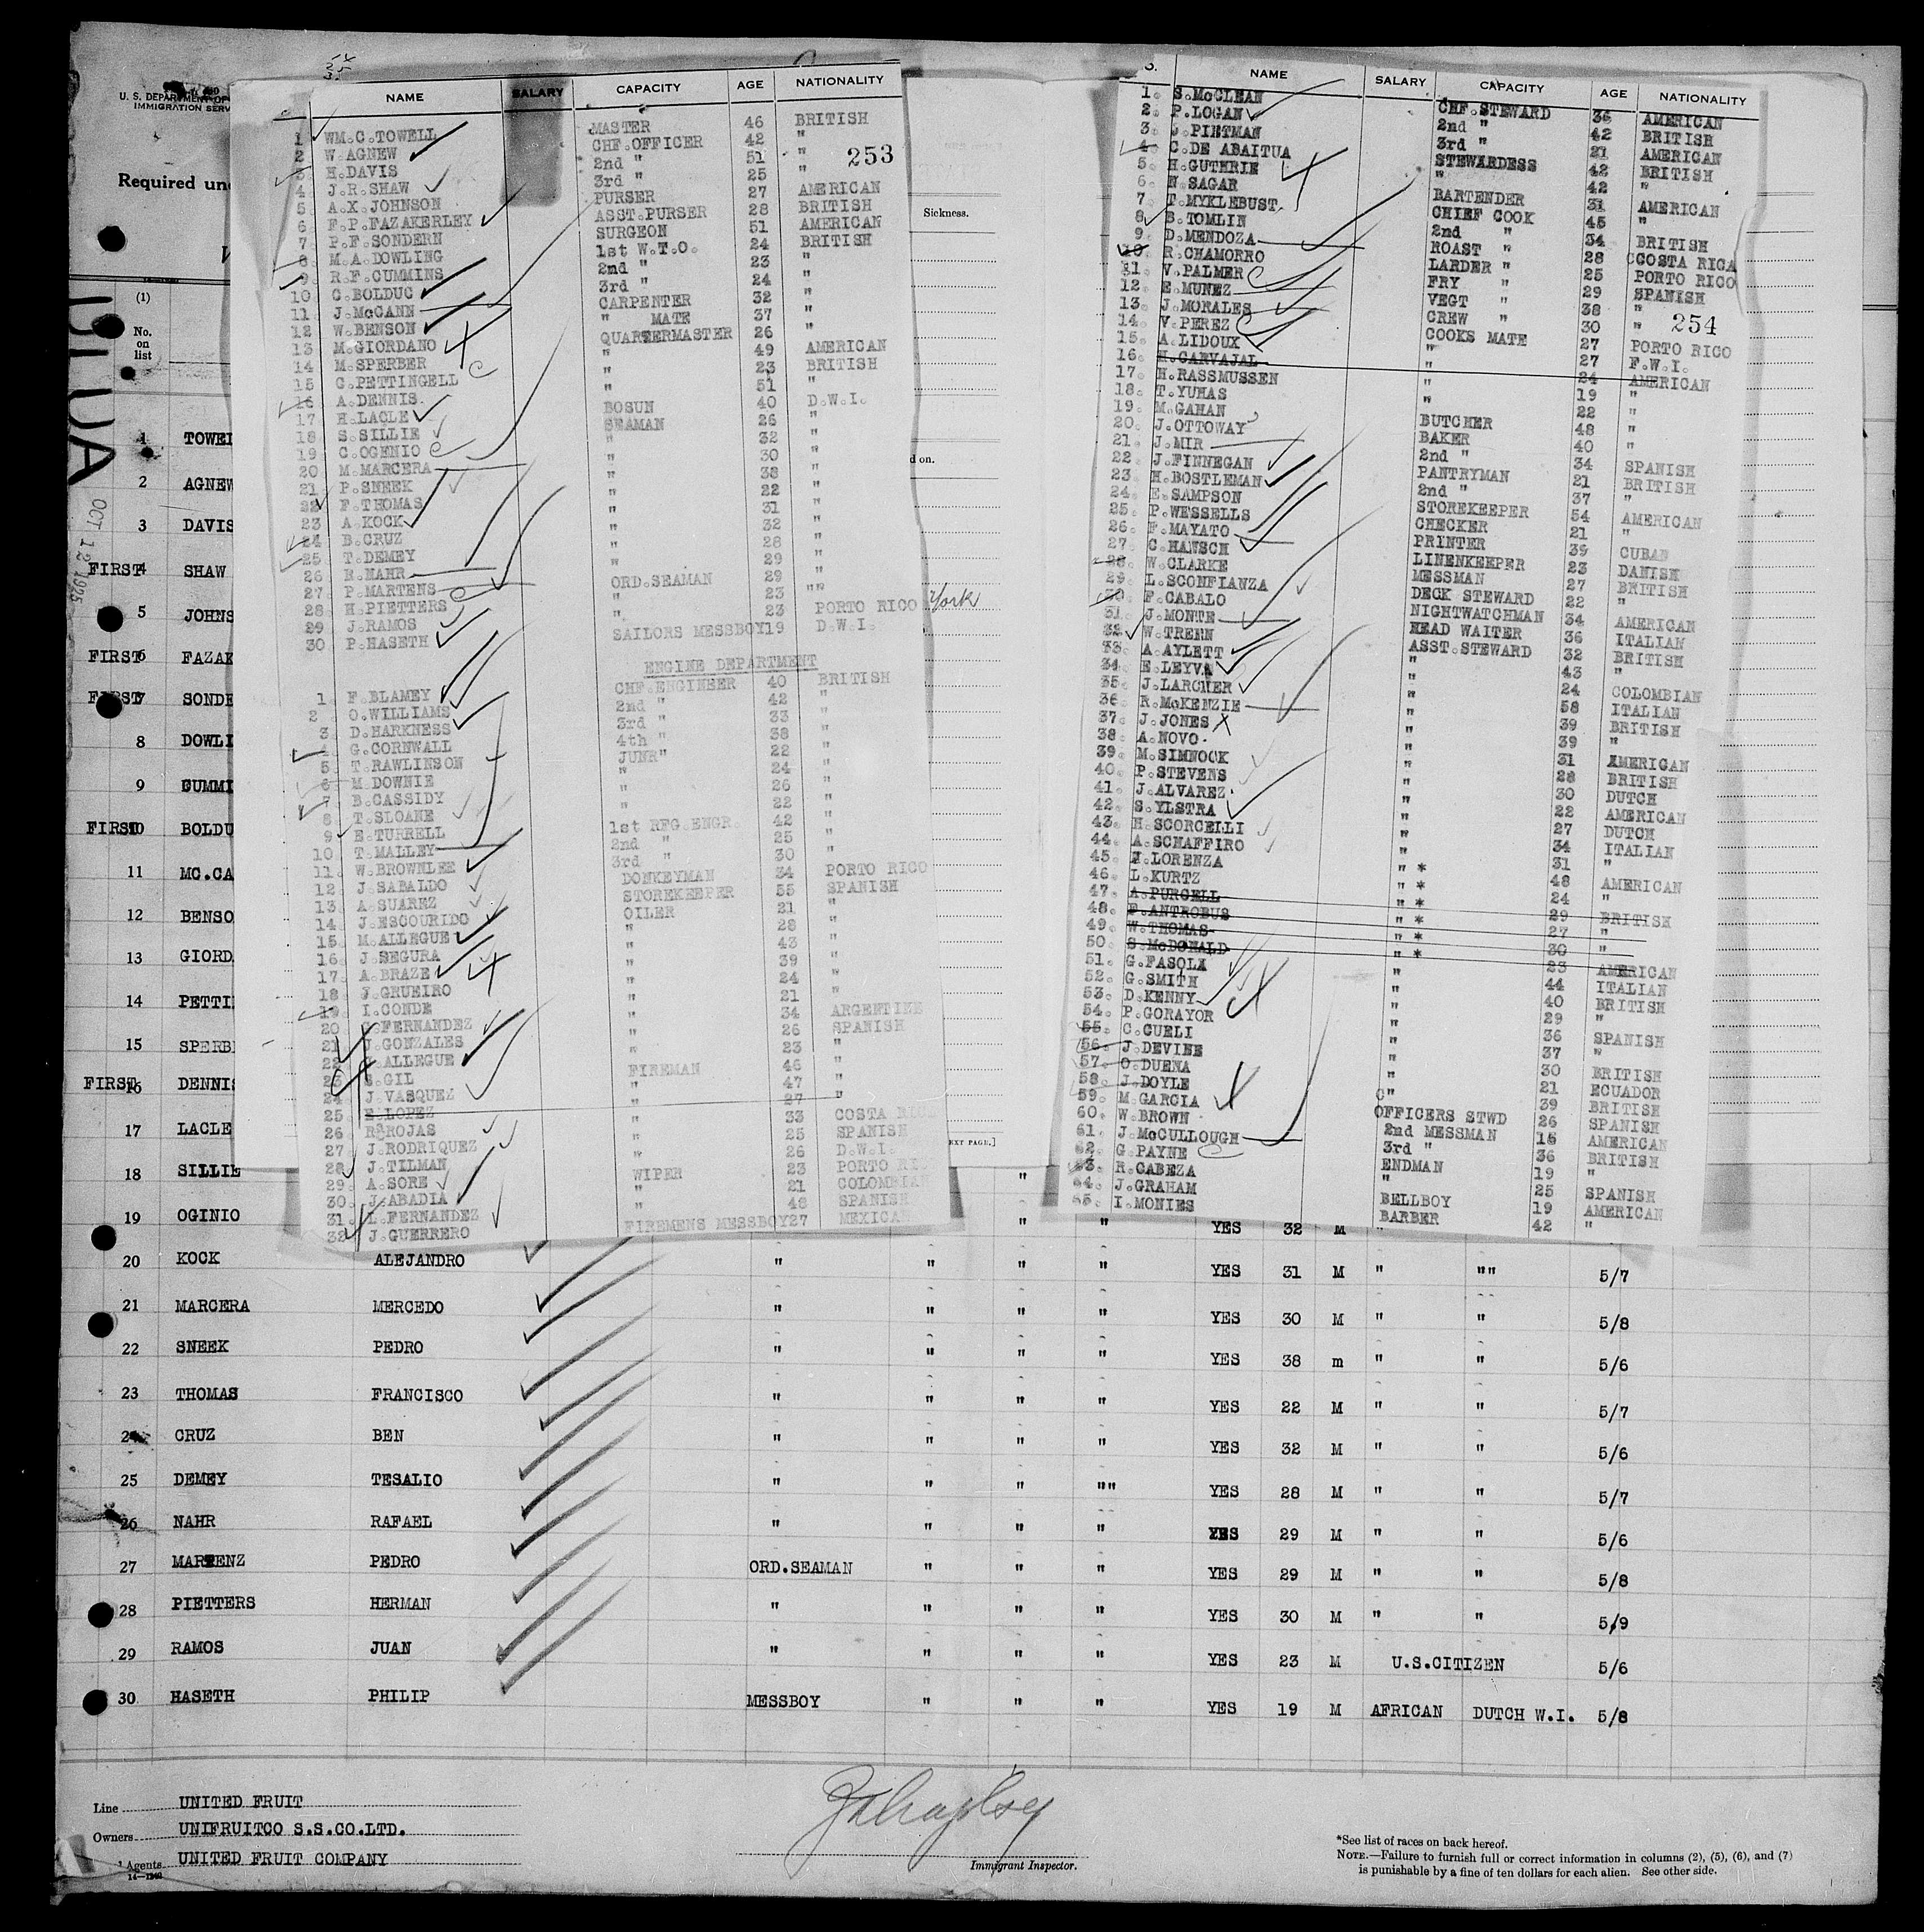 U. S. DEPARTMENT OF
IMMIGRATION SERV
Required un
(1)
No.
on
list
OCT 12 1925
Sickness.
d on.
EXT PAGE.]
York
NAME SALARY CAPACITY AGE NATIONALITY
253
1 WM.C.TOWELL MASTER 46 BRITISH
2 W.AGNEW CHF.OFFICER 42 "
3 H.DAVIS 2nd " 51 "
4 J.R.SHAW 3rd " 25 "
5 A.X.JOHNSON PURSER 27 AMERICAN
6 F.P.FAZAKERLEY ASST.PURSER 28 BRITISH
7 P.F.SONDERN SURGEON 51 AMERICAN
8 M.A.DOWLING 1st W.T.O. 24 BRITISH
9 R.F.CUMMINS 2nd " 23 "
10 C.BOLDUC 3rd " 24 "
11 J.McCANN CARPENTER 32 "
12 W.BENSON " MATE 37 "
13 M.GIORDANO QUARTERMASTER 26 "
14 M.SPERBER " 49 AMERICAN
15 C.PETTINGELL " 23 BRITISH
16 A.DENNIS. " 51 "
17 H.LACLE BOSUN 40 D.W.I.
18 S.SILLIE SEAMAN 26 "
19 C.OGENIO " 32 "
20 M.MARCERA " 30 "
21 P.SNEEK " 38 "
22 F.THOMAS " 22 "
23 A.KOCK " 31 "
24 B.CRUZ " 32 "
25 T.DEMEY " 28 "
26 R.NAHR " 29 "
27 P.MARTENS ORD.SEAMAN 29 "
28 H.PIETTERS " 23 ""
29 J.RAMOS " 23 PORTO RICO
30 P.HASETH SAILORS MESSBOY 19 D.W.I.
ENGINE DEPARTMENT
1 F.BLAMEY CHF.ENGINEER 40 BRITISH
2 O.WILLIAMS 2nd " 42 "
3 D.HARKNESS 3rd " 33 "
4 G.CORNWALL 4th " 38 "
5 T.RAWLINSON JUNR" 22 "
6 M.DOWNIE " 24 "
7 B.CASSIDY " 26 "
8 T.SLOANE " 22 "
9 E.TURRELL 1st RFG.ENGR. 42 "
10 T.MALLEY 2nd " 25 "
11 W.BROWNLEE 3rd " 30 "
12 J.SABALDO DONKEYMAN 34 PORTO RICO
13 A.SUAREZ STOREKEEPER 55 SPANISH
14 J.ESCOURIDO OILER 21 "
15 M.ALLEGUE " 28 "
16 J.SEGURA " 43 "
17 A.BRAZE " 39 "
18 J.GRUEIRO " 24 "
19 I.CONDE " 21 "
20 C.FERNANDEZ " 34 ARGENTINE
21 J.GONZALES " 26 SPANISH
22 ALLEGUE " 23 "
23 S.GIL FIREMAN 46 "
24 J.VASQUEZ " 47 "
25 E.LOPEZ " 27 "
26 R.ROJAS " 33 COSTA
27 J.RODRIQUEZ " 25 SPANISH
28 J.TILMAN " 26 D.W.I.
29 A.SORE WIPER 23 PORTO
30 J.ABADIA " 21 COLOMBIAN
31 L.FERNANDEZ " 48 SPANISH
32 J.GUERRERO FIREMENS MESSBOY 27 MEXICA
NAME SALARY CAPACITY AGE NATIONALITY
1. S.McCLEAN CHF.STEWARD 36 AMERICAN
2. P.LOGAN 2nd " 42 BRITISH
3. J.PIETMAN 3rd " 21 AMERICAN
4. C.DE ABAITUA STEWARDESS 42 BRITISH
5. H.GUTHRIE " 42 "
6. N.SAGAR BARTENDER 31 AMERICAN
7. T.MYKLEBUST CHIEF COOK 45 "
8. B.TOMLIN 2nd " 34 BRITISH
9. D.MENDOZA ROAST " 28 COSTA RICA
10. R.CHAMORRO LARDER " 25 PORTO RICO
11. V.PALMER FRY " 29 SPANISH
12. E.MUNEZ VEGT " 38 "
13. J.MORALES CREW " 30 "
254
14. V.PEREZ COOKS MATE 27 PORTO RICO
15. A.LIDOUX " 27 F.W.I.
16. H.CARVAJAL " 24 AMERICAN
17. H.RASSMUSSEN " 19 "
18. T.YUHAS " 22 "
19. M.GAHAN BUTCHER 48 "
20. J.OTTOWAY BAKER 40 "
21. J.MIR 2nd " 34 SPANISH
22. J.FINNEGAN PANTRYMAN 21 BRITISH
23. H.BOSTLEMAN 2nd " 37 "
24. E.SAMPSON STOREKEEPER 54 AMERICAN
25. P.WESSELLS CHECKER 21 "
26. F.MAYATO PRINTER 39 CUBAN
27. C.HANSCH LINENKEEPER 23 DANISH
28. W.CLARKE MESSMAN 27 BRITISH
29. L.SCONFIANZA DECK STEWARD 22 "
30. F.CABALO NIGHTWATCHMAN 34 AMERICAN
31. J.MONTE HEAD WAITER 36 ITALIAN
32. W.TREEN ASST.STEWARD 32 BRITISH
33. A.AYLETT " 43 "
34. E.LEYVA " 24 COLOMBIAN
35. J.LARCHER " 58 ITALIAN
36. R.McKENZIE " 39 BRITISH
37. J.JONES " 39 "
38. A.NOVO. " 31 AMERICAN
39. M.SIMNOCK " 28 BRITISH
40. P.STEVENS " 30 DUTCH
41. J.ALVAREZ. " 22 AMERICAN
42. S.YLSTRA " 27 DUTCH
43. H.SCORCELLI " 34 ITALIAN
44. A.SCHAFFIRO " 31 "
45. I.LORENZA " * 48 AMERICAN
46. L.KURTZ " * 24 "
47. A.PURCELL " * 29 BRITISH
48. F.ANTROBUS " * 27 "
49. W.THOMAS " * 30 "
50. S.McDONALD " * 23 AMERICAN
51. G.FASOLA " 44 ITALIAN
52. G.SMITH " 40 BRITISH
53. D.KENNY " 29 "
54. P.GORAYOR " 36 SPANISH
55. C.CUELI " 37 "
56. J.DEVINE " 30 BRITISH
57. O.DUENA " 21 ECUADOR
58. J.DOYLE " 39 BRITISH
59. M.GARCIA OFFICERS STWD 26 SPANISH
60. W.BROWN 2nd MESSMAN 15 AMERICAN
61. J.McCULLOUGH 3rd " 36 BRITISH
62. G.PAYNE ENDMAN 19 "
63. R.CABEZA " 25 SPANISH
64. J.GRAHAM BELLBOY 19 AMERICAN
65. I.MONIES BARBER 42 "
1 TOWEL
2 AGNEW
3 DAVIS
FIRST 4 SHAW
5 JOHNS
FIRST 6 FAZAK
FIRST 7 SONDE
8 DOWLI
9 GUMMI
FIRST 10 BOLDU
11 MC.CA
12 BENSO
13 GIORD
14 PETTI
15 SPERB
FIRST 16 DENNIS
17 LACLE
18 SILLIE "
19 OGINIO " " YES 32 M
20 KOCK ALEJANDRO " " " " YES 31 M " "" 5/7
21 MARCERA MERCEDO " " " " YES 30 M " " 5/8
22 SNEEK PEDRO " " " " YES 38 m " " 5/6
23 THOMAS FRANCISCO " " " " YES 22 M " " 5/7
24 CRUZ BEN " " " " YES 32 M " " 5/6
25 DEMEY TESALIO " " " "" YES 28 M " " 5/7
26 NAHR RAFAEL " " " " YES 29 M " " 5/6
27 MARTENZ PEDRO ORD.SEAMAN " " " YES 29 M " " 5/8
28 PIETTERS HERMAN " " " " YES 30 M " " 5/9
29 RAMOS JUAN " " " " YES 23 M U.S.CITIZEN 5/6
30 HASETH PHILIP MESSBOY " " " YES 19 M AFRICAN DUTCH W.I. 5/8
Line UNITED FRUIT
Owners UNIFRUITCO S.S.CO.LTD.
Agents UNITED FRUIT COMPANY
Immigrant Inspector.
*See list of races on back hereof.
NOTE.—Failure to furnish full or correct information in columns (2), (5), (6), and (7)
is punishable by a fine of ten dollars for each alien. See other side.